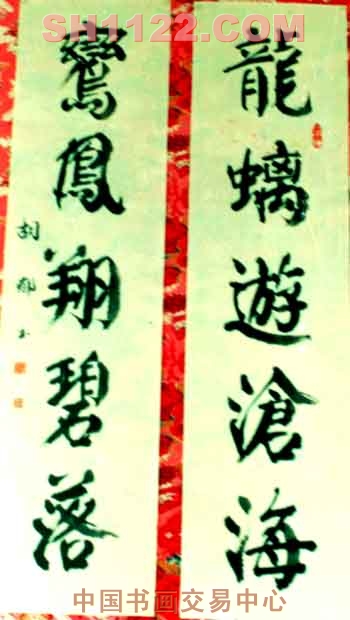 SH1122.COM
龍螭遊滄海
鸞鳳翔碧落
中国书画交易中心